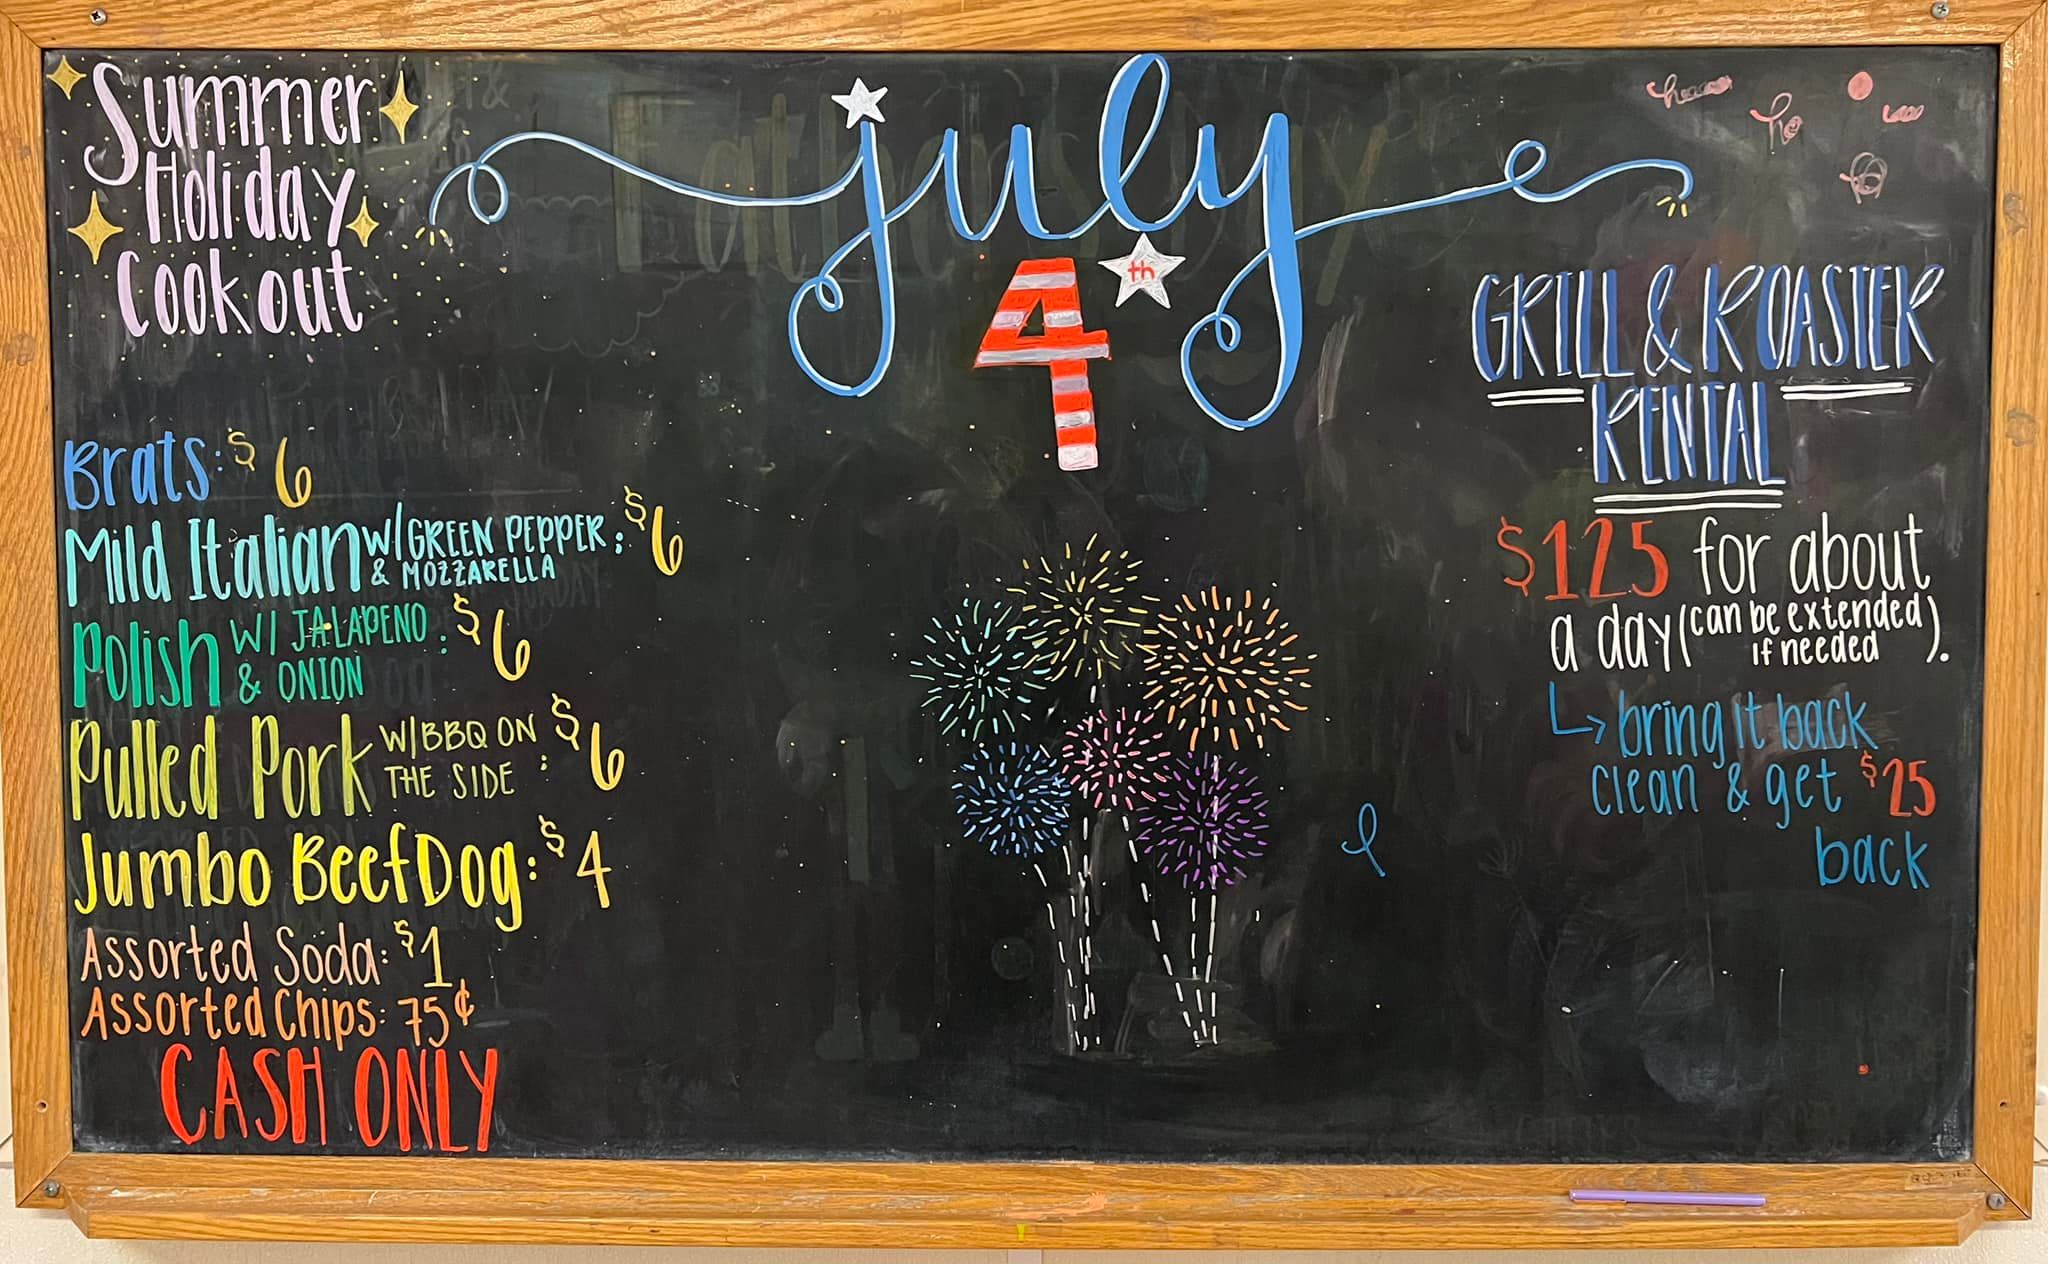 Summer
Holiday
Cookout
july
4th
Brats: $6
Mild Italian W/ GREEN PEPPER : $6
& MOZZARELLA
Polish W/ JALAPENO : $6
& ONION
Pulled Pork W/ BBQ ON : $6
THE SIDE
Jumbo Beef Dog: $4
Assorted Soda: $1
Assorted Chips: 75¢
CASH ONLY
GRILL & ROASTER
RENTAL
$125 for about
a day (can be extended
if needed).
↳ bring it back
clean & get $25
back